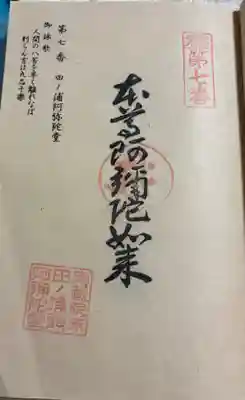 第七番
本尊阿彌陀如来
第七番 田ノ浦阿弥陀堂
御詠歌
人間の八苦を早く離れなば
到らん方は九品十樂
田ノ浦
阿彌陀堂